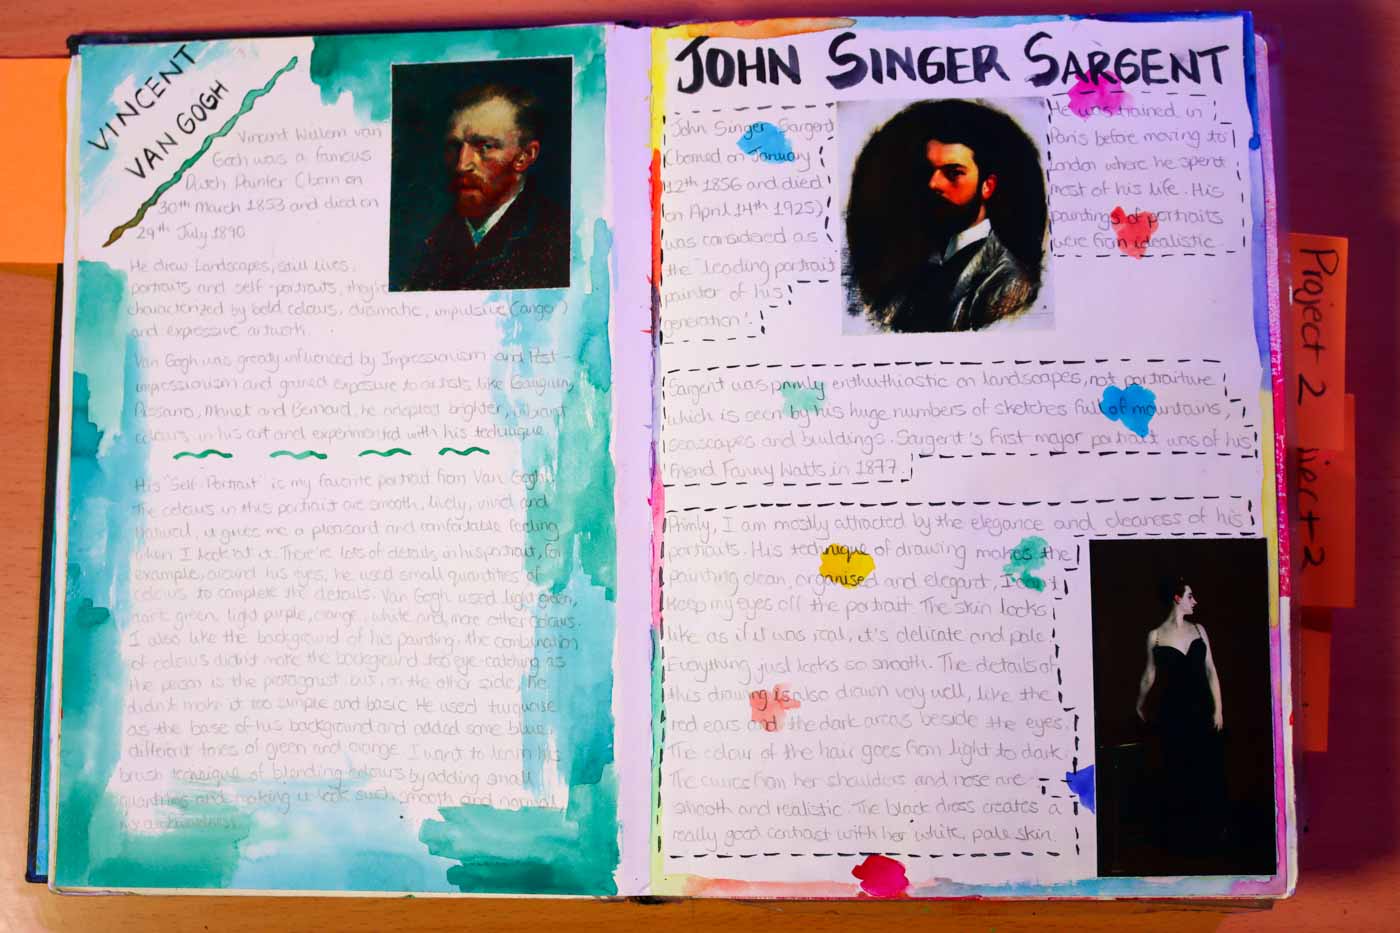 VINCENT
VAN GOGH
Vincent Willem van
Gogh was a famous
Dutch Painter (born on
30th March 1853 and died on
29th July 1890
He drew Landscapes, still lives,
portraits and self-portraits, they're
characterized by bold colours, dramatic, impulsive (anger)
and expressive artwork.
Van Gogh was greatly influenced by Impressionism and Post-
impressionism and gained exposure to artists like Gauguin,
Pissarro, Monet and Bernard, he adapted brighter, vibrant
colours in his art and experimented with his technique
His 'Self-Portrait' is my favorite portrait from Van Gogh,
the colours in this portrait are smooth, lively, vivid and
natural, it gives me a pleasant and comfortable feeling
when I look at it. There're lots of details in his portrait, for
example, around his eyes, he used small quantities of
colours to complete the details. Van Gogh used light green,
dark green, light purple, orange, white and more other colours.
I also like the background of his painting, the combination
of colours didn't make the background too eye-catching as
the person is the protagonist, but, on the other side, he
didn't make it too simple and basic. He used turquoise
as the base of his background and added some blue,
different tones of green and orange. I want to learn his
brush technique of blending colours by adding small
quantities and making it look such smooth and normal,
JOHN SINGER SARGENT
John Singer Sargent
(borned on January
12th 1856 and died
on April 14th 1925)
was considered as
the "leading portrait
painter of his
generation".
He was trained in
Paris before moving to
London where he spent
most of his life. His
paintings of portraits
were from idealistic.
Sargent was primly enthuthiastic on landscapes, not portraiture
which is seen by his huge numbers of sketches full of mountains,
seascapes and buildings. Sargent's first major portrait was of his
friend Fanny Watts in 1877.
Primly, I am mostly attracted by the elegance and cleaness of his
portraits. His technique of drawing makes the
painting clean, organised and elegant, I can't
keep my eyes off the portrait. The skin looks
like as if it was real, it's delicate and pale.
Everything just looks so smooth. The details of
this drawing is also drawn very well, like the
red ears and the dark areas beside the eyes.
The colour of the hair goes from light to dark.
The curves from her shoulders and nose are
smooth and realistic. The black dress creates a
really good contrast with her white, pale skin.
Project 2
ject 2